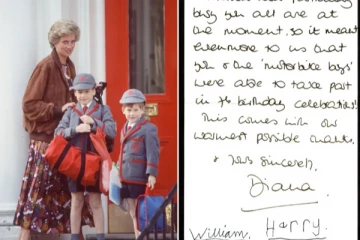 busy you all are at
the moment, so it meant
even more to us that
you & the 'motorbike boys'
were able to take part
in the birthday celebrations!
This comes with our
warmest possible thanks.
Yours sincerely,
Diana
William. Harry.